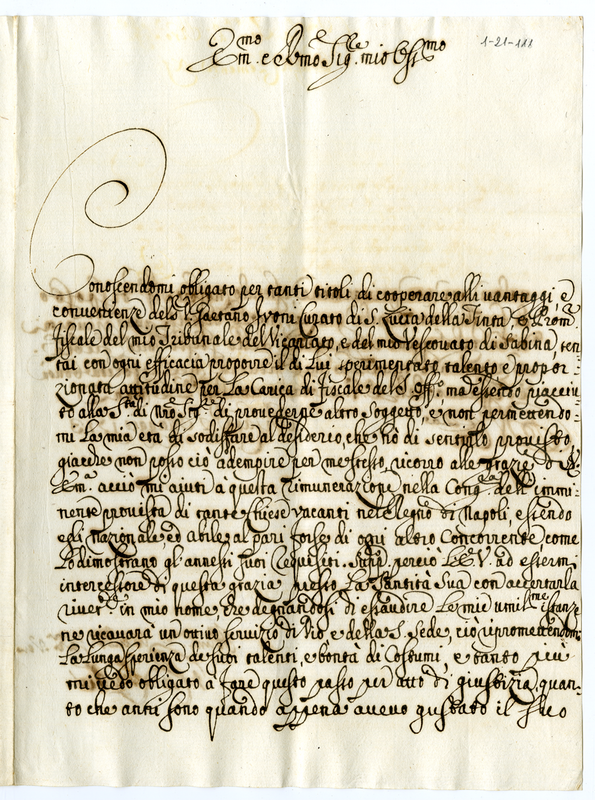 1-21-111
Em.mo e R.mo Sig.re mio Oss.mo
Conoscendomi obligato per tanti titoli di cooperare alli vantaggi, e
convenienze del S.r Gaetano Curato di S. Lucia della Tinta, e Prom.re
Fiscale del mio Tribunale del Vicariato, e del mio Vescovato di Sabina, ten-
tai con ogni efficacia proporre il di Lui sperimentato talento e propor-
zionata attitudine per La Carica di Fiscale del S. Off.o ma essendo piaciu-
to alla S.tà di N.ro Sig.re di provederne altro Soggetto, e non permettendo-
mi La mia età di sodisfare al desiderio, che hò di sentirlo provisto,
giacche non posso ciò adempire per me stesso, ricorro alle grazie di V.
Em.a acciò mi ajuti à questa rimunerazione nella Cong.ne dell' immi-
nente provista di tante Chiese vacanti nel Regno di Napoli, essendo
egli Nazionale, ed abile al pari forse di ogni altro Concorrente come
Lo dimostrano gl' annessi suoi requisiti. Supp.co perciò L'Em. V. ad essermi
intercessore di questa grazia presso La Santità Sua con accertarla
river.te in mio nome, che degnandosi di esaudire Le mie umil.me istanze
ne ricavarà un ottimo servizio di Dio, e della S. Sede, ciò ripromettendomi
La Lunga sperienza de suoi talenti, e bontà di Costumi, e tanto più
mi vedo obligato a fare questo passo per atto di giustizia, quan-
to che anni sono quando appena avevo gustato il suo